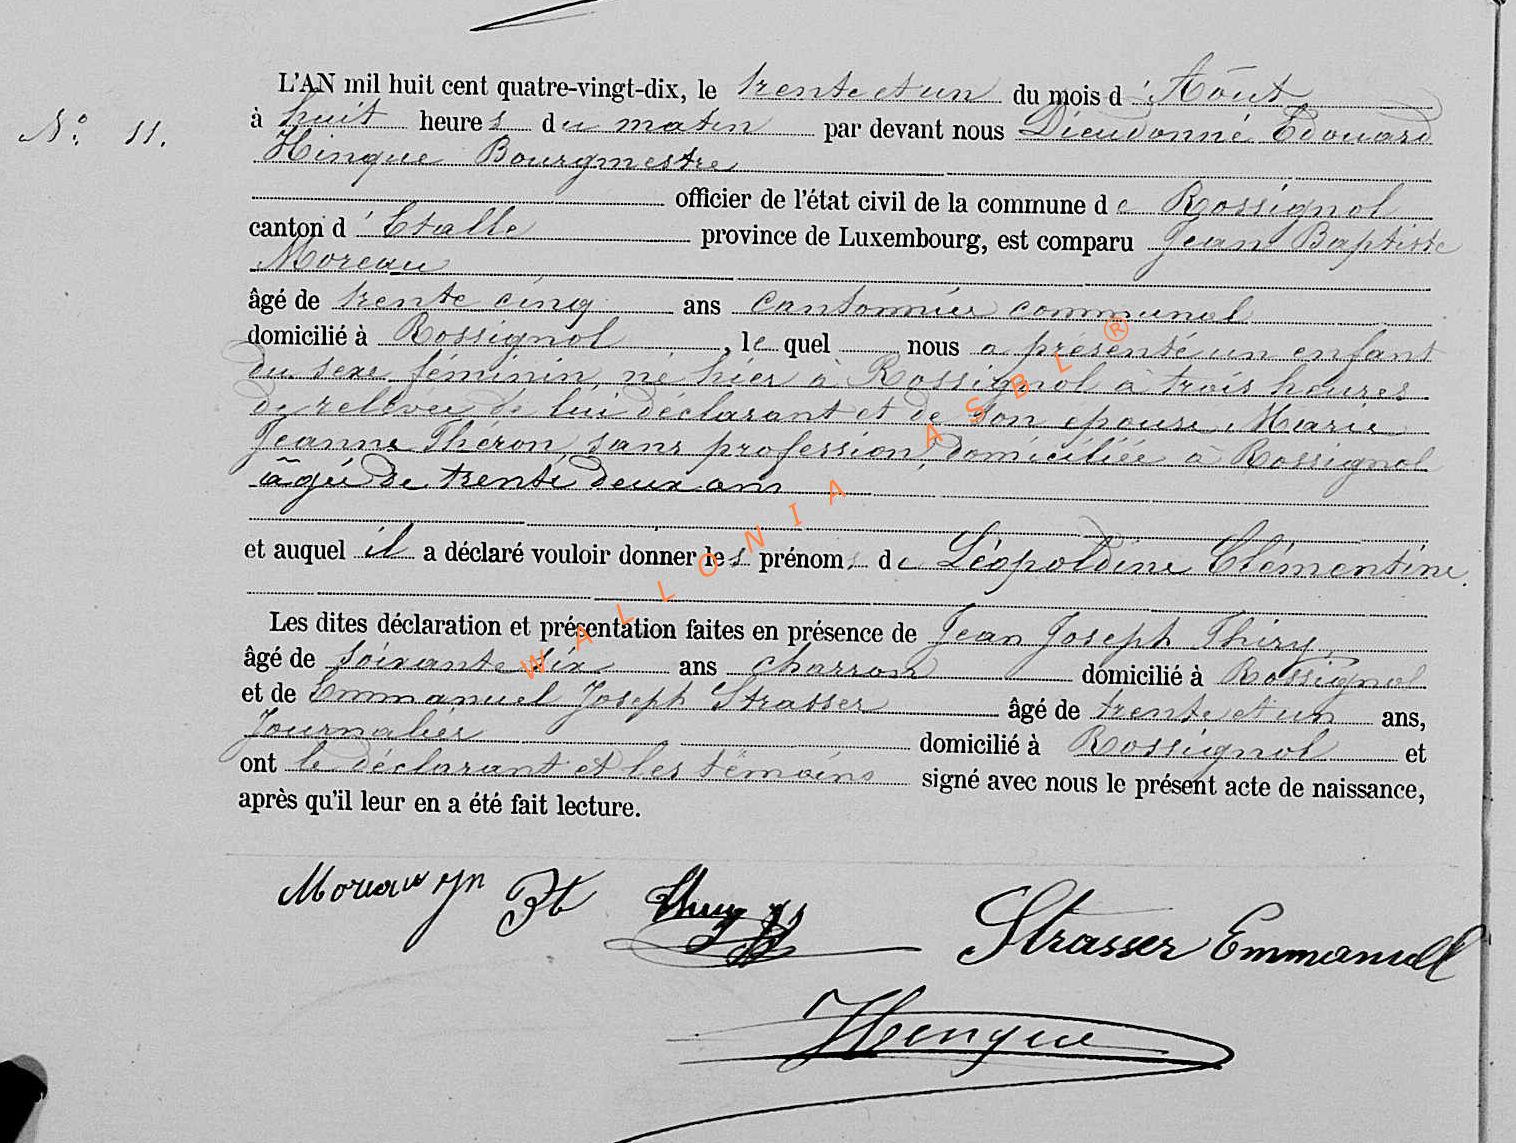 L'AN mil huit cent quatre-vingt-dix, le trente et un du mois d'Août
N° 11. à huit heures du matin par devant nous Dieudonné Edouard
Hinque Bourgmestre
officier de l'état civil de la commune de Rossignol
canton d'Etalle province de Luxembourg, est comparu Jean Baptiste
Moreau
âgé de trente cinq ans cantonnier communal
domicilié à Rossignol, lequel nous a présenté un enfant
du sexe féminin, né hier à Rossignol à trois heures
de relevée de lui déclarant et de son épouse Marie
Jeanne Théron, sans profession, domiciliée à Rossignol
âgée de trente deux ans
et auquel il a déclaré vouloir donner les prénoms de Léopoldine Clémentine.
Les dites déclaration et présentation faites en présence de Jean Joseph Thiry,
âgé de soixante six ans charron domicilié à Rossignol
et de Emmanuel Joseph Strasser âgé de trente et un ans,
Journalier domicilié à Rossignol et
ont le déclarant et les témoins signé avec nous le présent acte de naissance,
après qu'il leur en a été fait lecture.
Moreau Jn Bt Thiry JJ Strasser Emmanuel
Hinque
WALLONIA ASBL ®